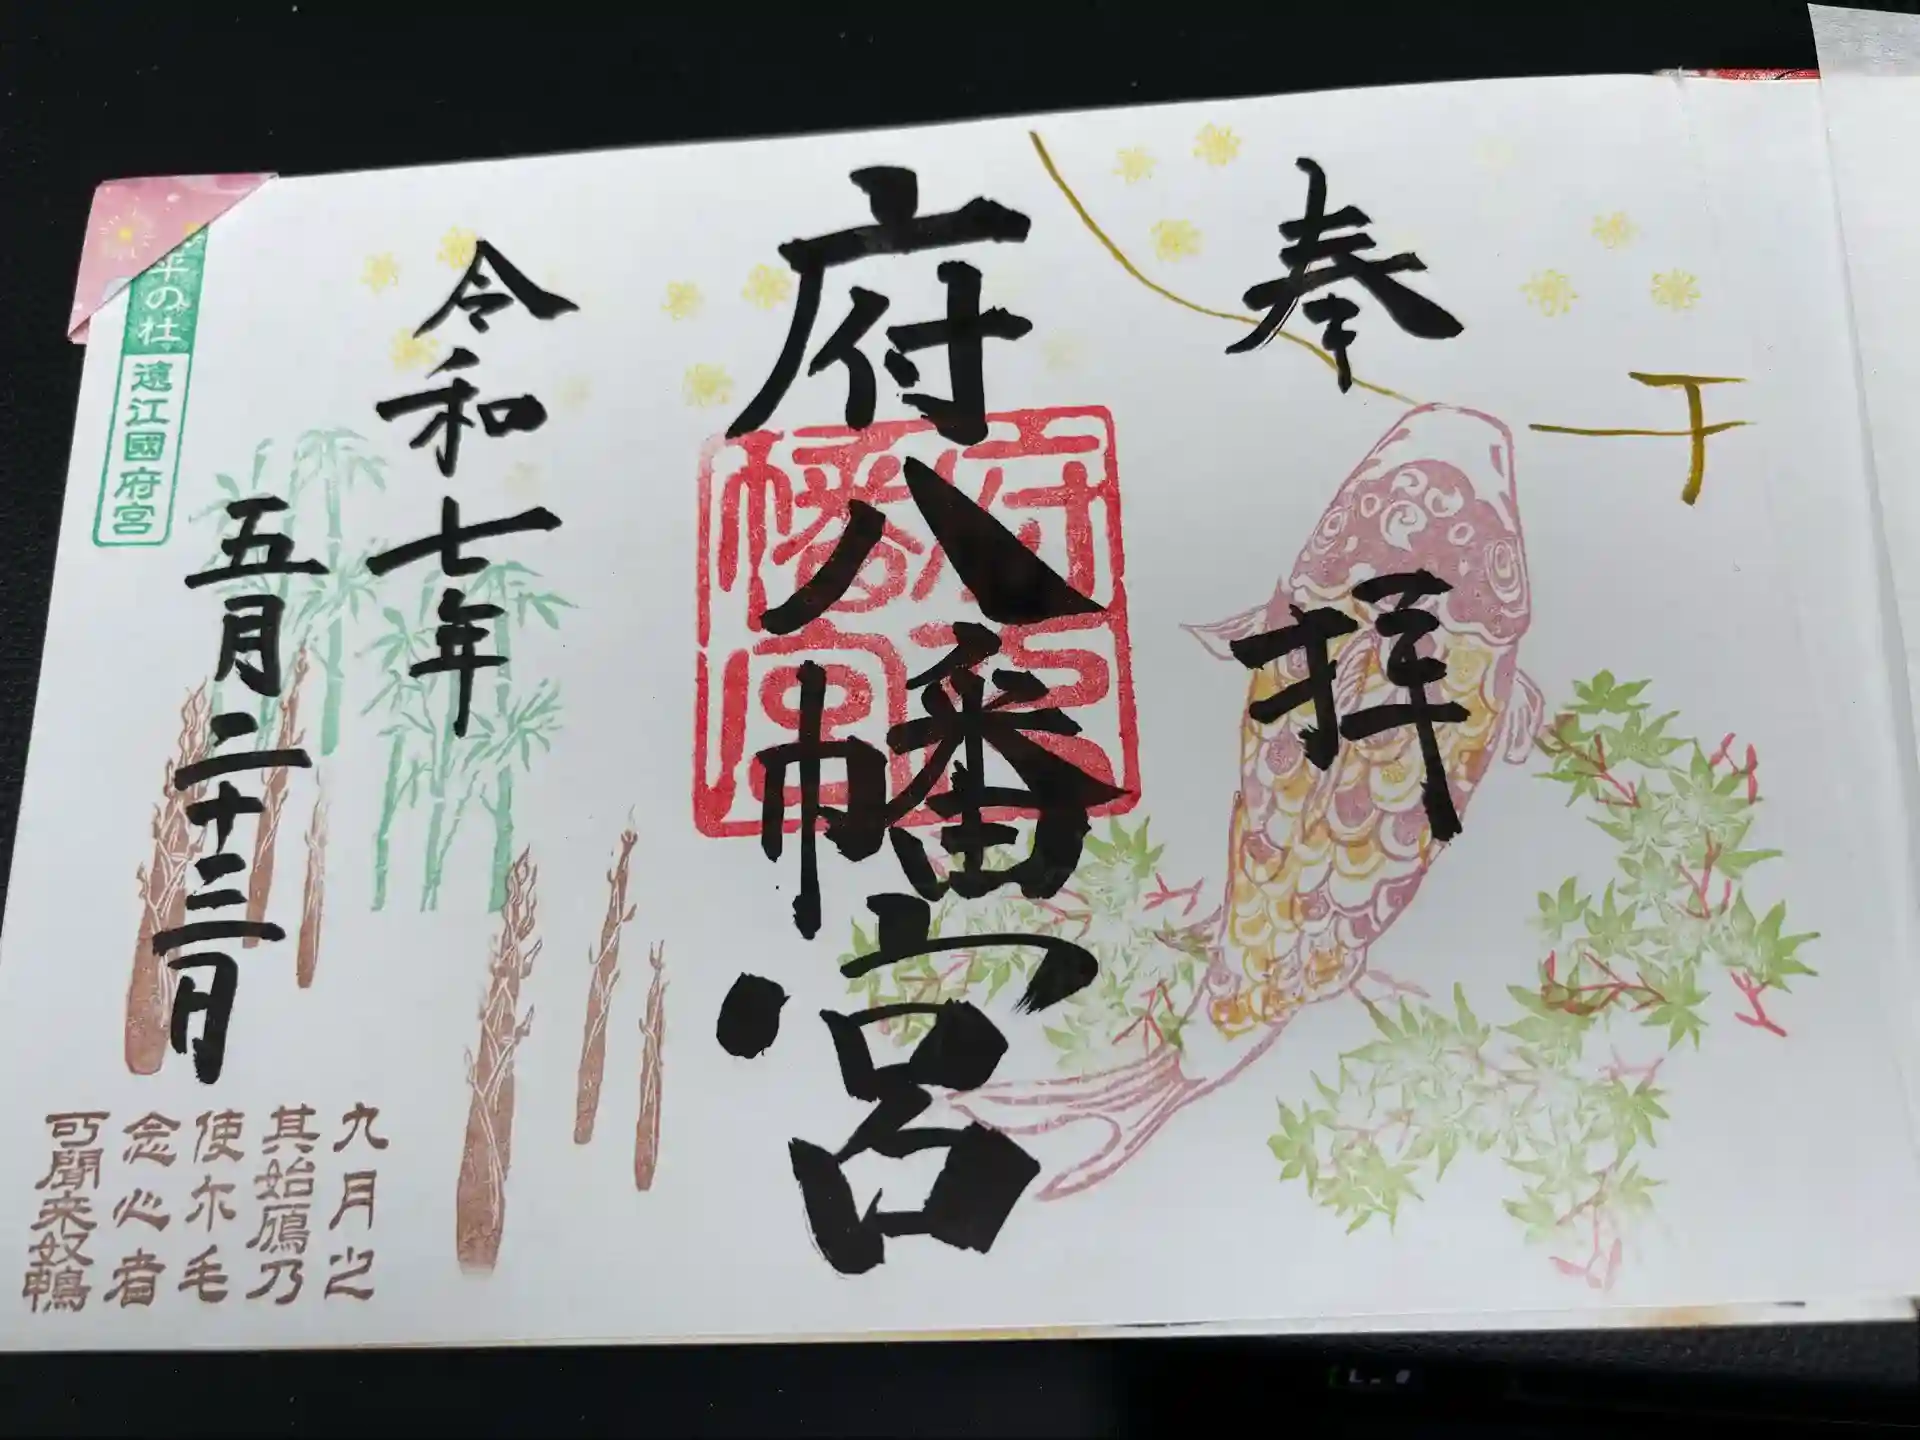 奉拝
府八幡宮
令和七年
五月二十三日
平の杜
遠江國府宮
九月之
其始鴈乃
使尓毛
念心者
可聞来奴鴨